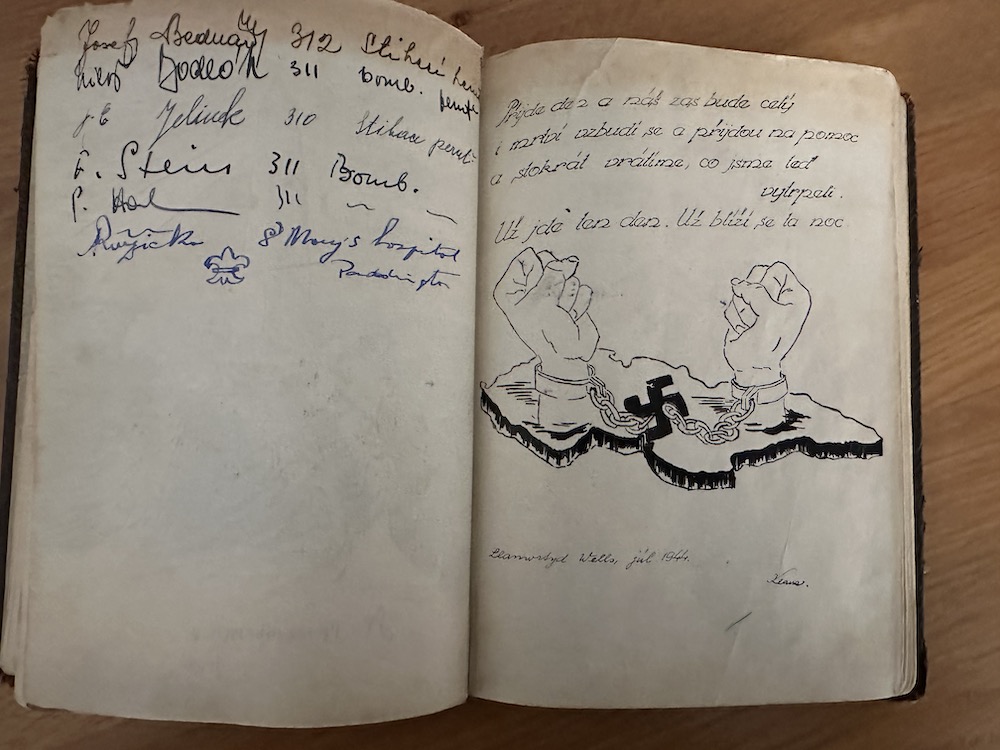 Josef Bednář 312 Stíhací
311 Bomb. peruť
Jelínek 310 Stíhací peruť
F. Stein 311 Bomb.
P. 311 ~ ~
Růžička St Mary's hospital
Paddington
Přijde den a náš zas bude celý
i mrtví vzbudí se a přijdou na pomoc
a stokrát vrátíme, co jsme teď
vytrpěli.
Už jde ten den. Už blíží se ta noc
Llanwrtyd Wells, júl 1944.